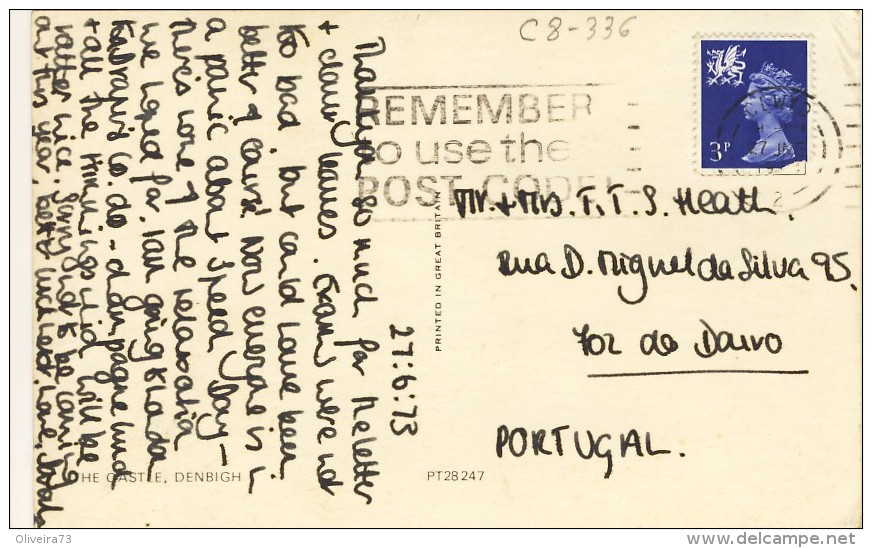 C8-336
3P
CLWYD
REMEMBER
to use the
POST CODE
27:6:73
Thank you so much for the letter
+ clover leaves. Exams were not
too bad but could have been
better of course! Now everyone is in
a panic about Speed Day –
there's none of the relaxation
we hoped for. Ian going to
Co. do – champagne lunch
+ all the trimmings which will be
rather nice. Sorry not to be coming
out this year, better luck next. Love,
Mr. + Mrs. T.T.S. Heath.
Rua D. Miguel da Silva 95.
Foz do Douro
PORTUGAL.
PRINTED IN GREAT BRITAIN
THE CASTLE, DENBIGH
PT28247
Oliveira73
www.delcampe.net